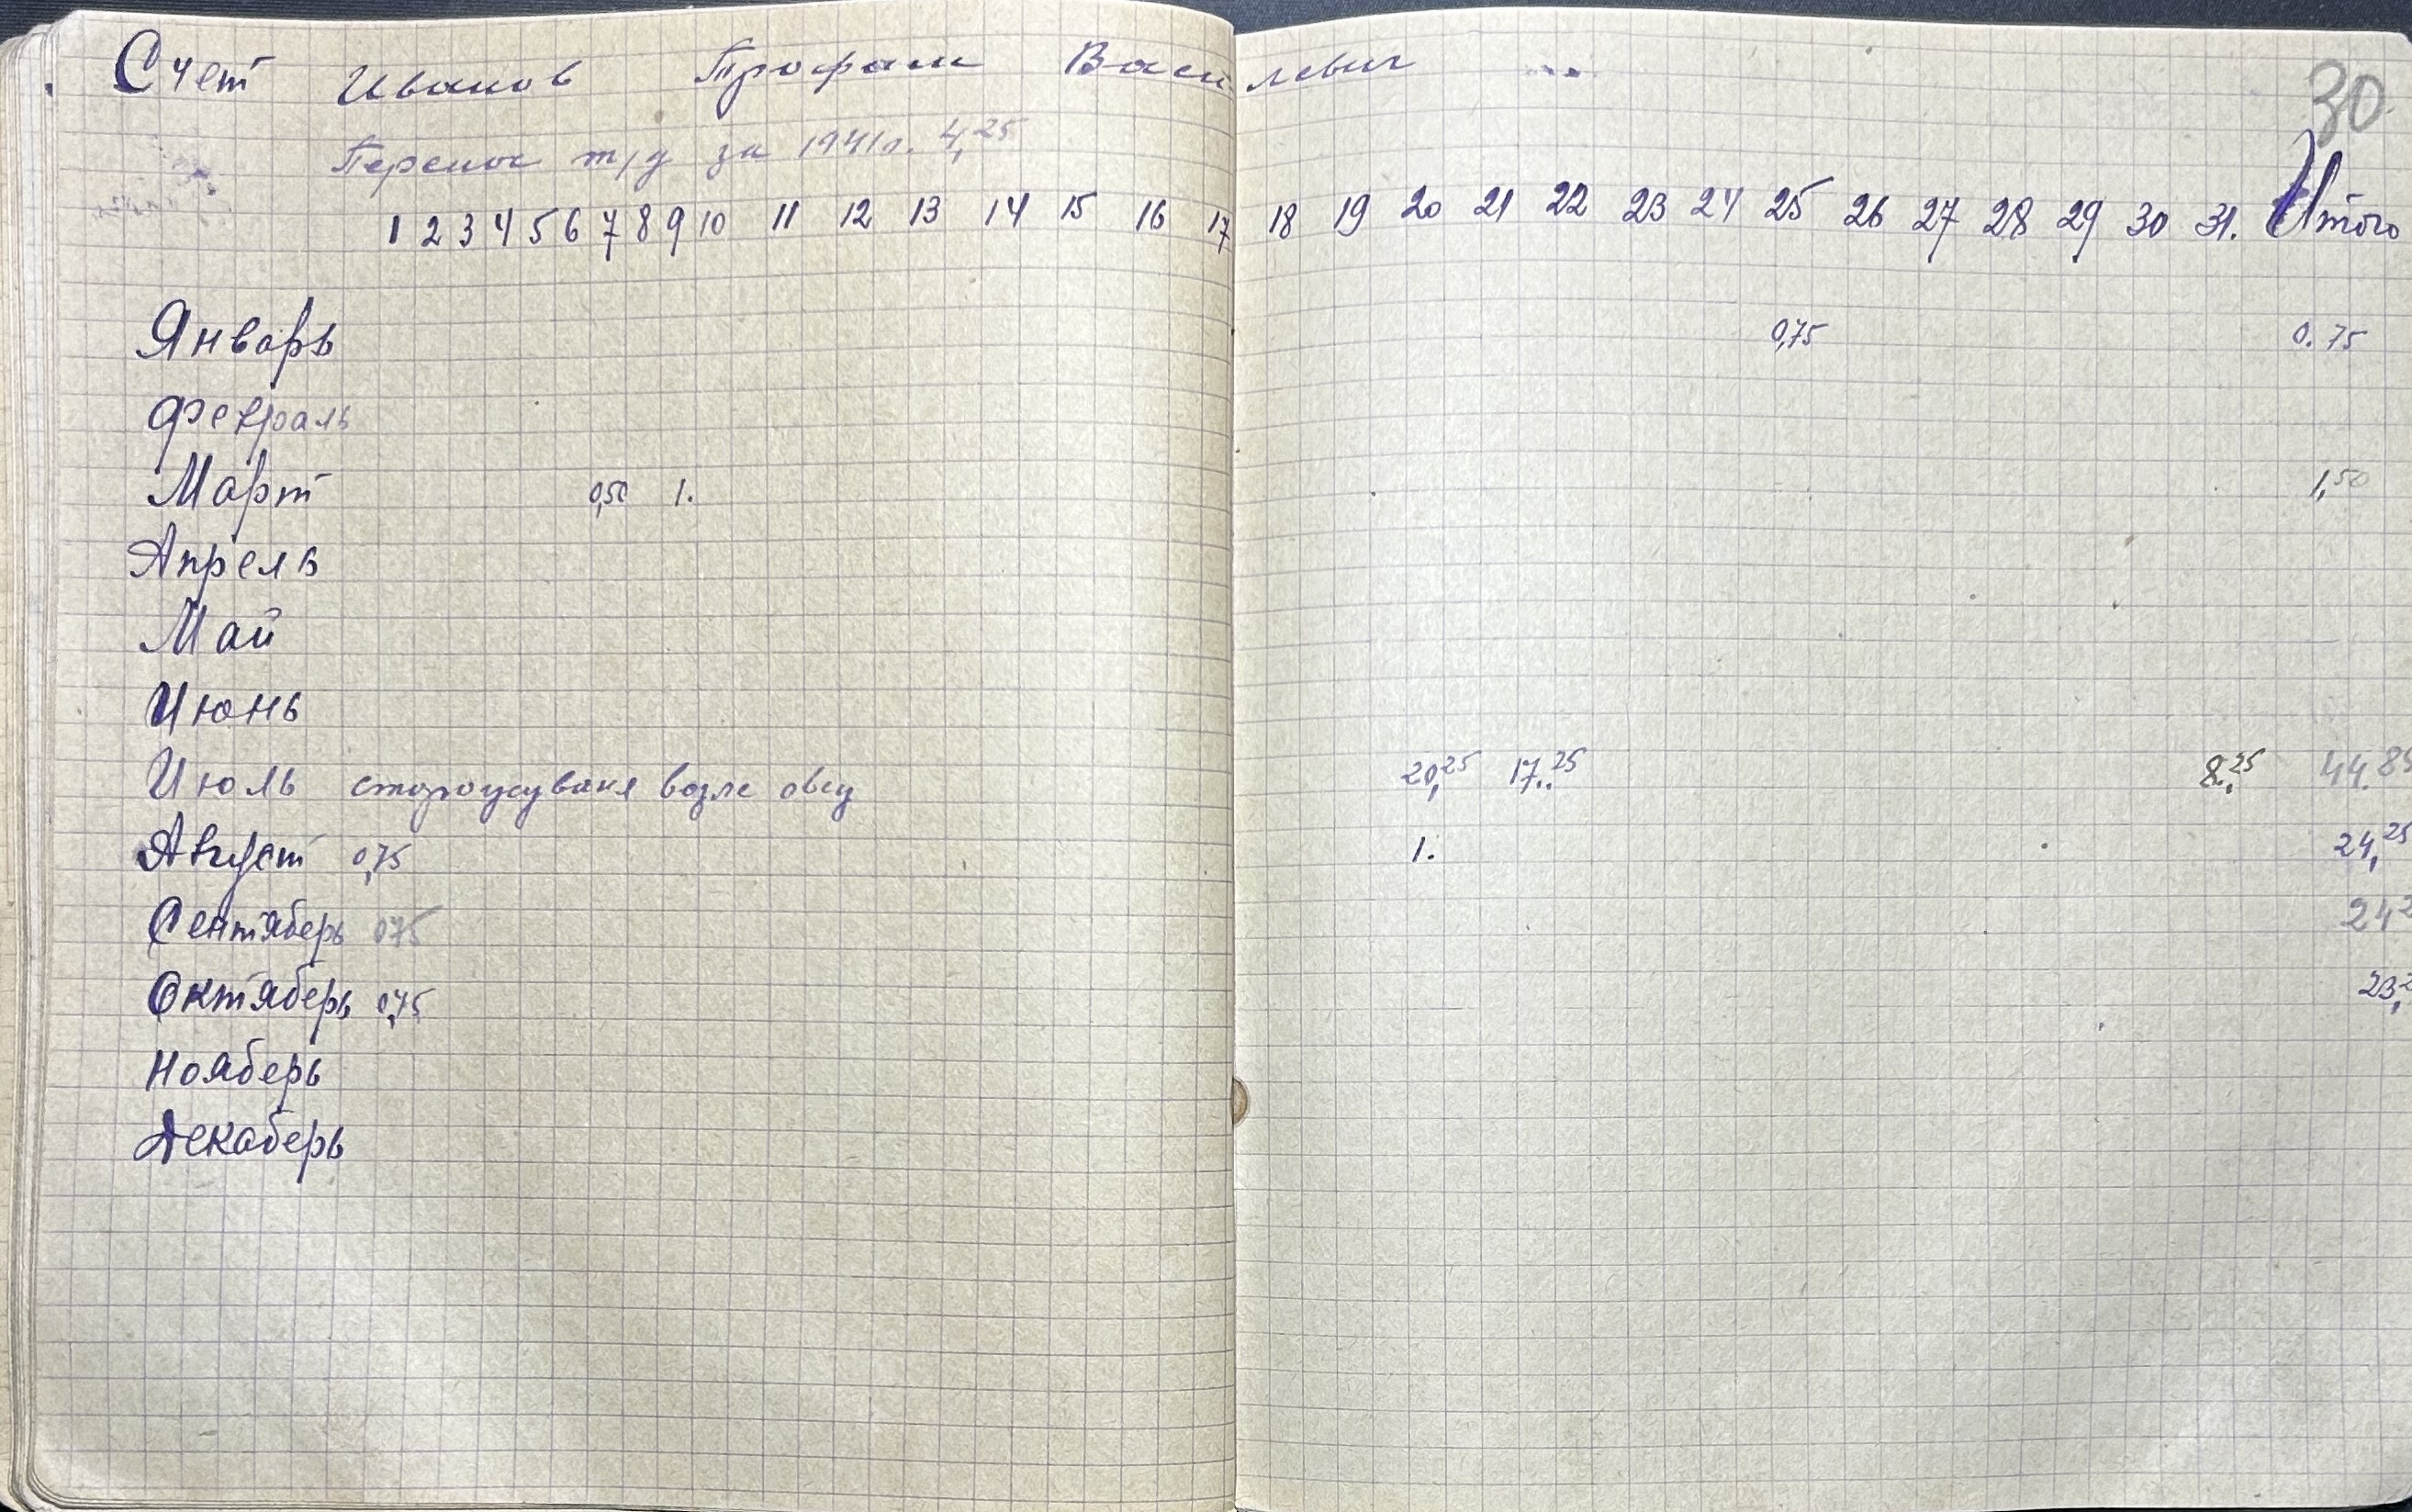 Счет Иванов Трофам Василевич
30
Перенос т/д за 1941г. 4,25
1 2 3 4 5 6 7 8 9 10 11 12 13 14 15 16 17 18 19 20 21 22 23 24 25 26 27 28 29 30 31. Итого
Январь 0,75 0.75
Февраль
Март 0,50 1. 1,50
Апрель
Май
Июнь
Июль сторожуваня возле овец 20,25 17.25 8.25 44.85
Август 0,75 1. 24,25
Сентяберь 075 242
Октяберь 0,75 23,2
Нояберь
Декаберь